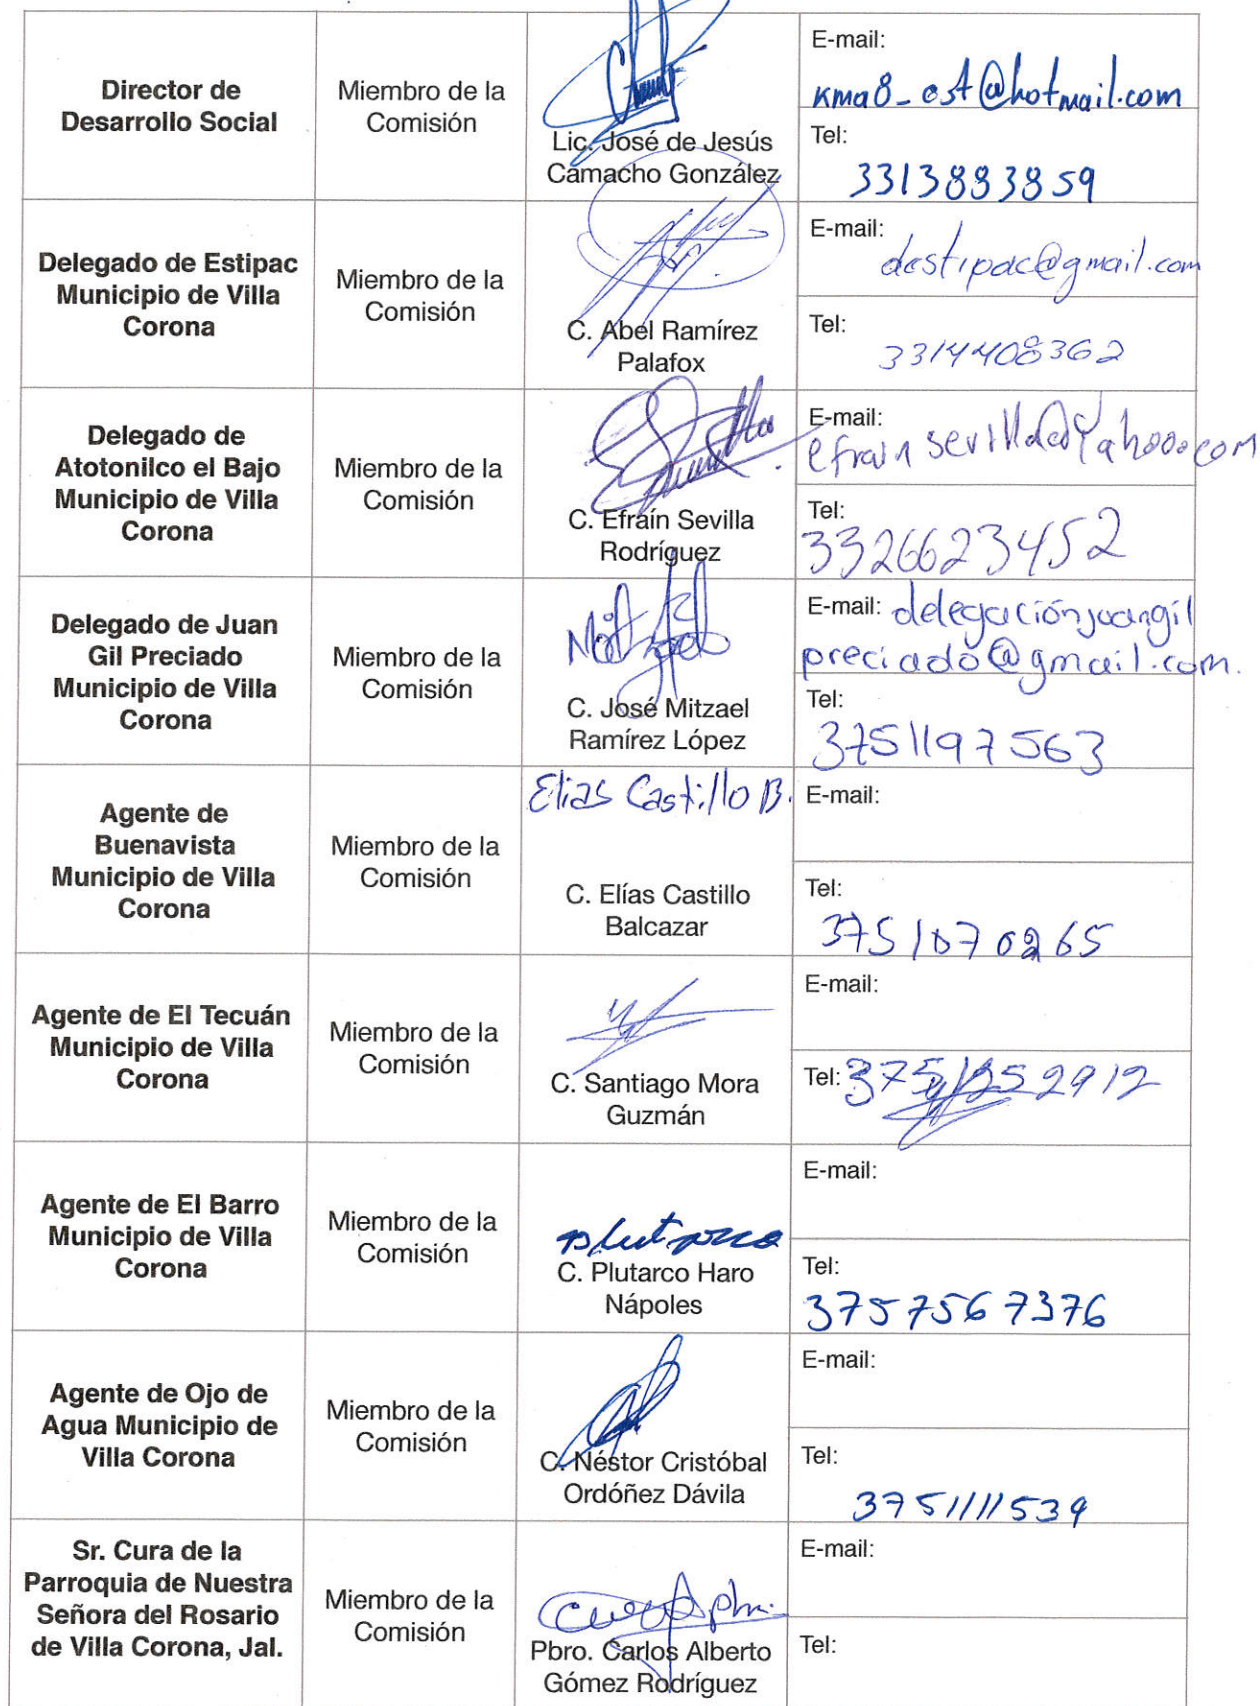 Director de
Desarrollo Social
Miembro de la
Comisión
Lic. José de Jesús
Camacho González
E-mail:
kma8_est@hotmail.com
Tel:
3313883859
Delegado de Estipac
Municipio de Villa
Corona
Miembro de la
Comisión
C. Abel Ramírez
Palafox
E-mail:
destipac@gmail.com
Tel:
3314408362
Delegado de
Atotonilco el Bajo
Municipio de Villa
Corona
Miembro de la
Comisión
C. Efraín Sevilla
Rodríguez
E-mail:
Tel:
3326623452
Delegado de Juan
Gil Preciado
Municipio de Villa
Corona
Miembro de la
Comisión
C. José Mitzael
Ramírez López
E-mail: delegaciónjuangil
preciado@gmail.com.
Tel:
3751197563
Agente de
Buenavista
Municipio de Villa
Corona
Miembro de la
Comisión
Elias Castillo B.
C. Elías Castillo
Balcazar
E-mail:
Tel:
3751070265
Agente de El Tecuán
Municipio de Villa
Corona
Miembro de la
Comisión
C. Santiago Mora
Guzmán
E-mail:
Tel:
Agente de El Barro
Municipio de Villa
Corona
Miembro de la
Comisión
Plutarco
C. Plutarco Haro
Nápoles
E-mail:
Tel:
3757567376
Agente de Ojo de
Agua Municipio de
Villa Corona
Miembro de la
Comisión
C. Néstor Cristóbal
Ordóñez Dávila
E-mail:
Tel:
3751111539
Sr. Cura de la
Parroquia de Nuestra
Señora del Rosario
de Villa Corona, Jal.
Miembro de la
Comisión
Pbro. Carlos Alberto
Gómez Rodríguez
E-mail:
Tel: